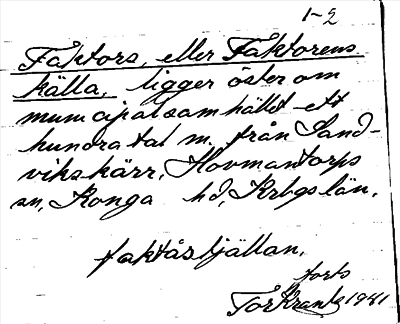 1-2
Faktors, eller Faktorens
källa, ligger öster om
municipalsamhället ett
hundratal m. från Sand-
vikskärr, Hovmantorps
sn, Konga hd, Krbgs län.
faktåstjällan.
forts
Tor Krantz 1941